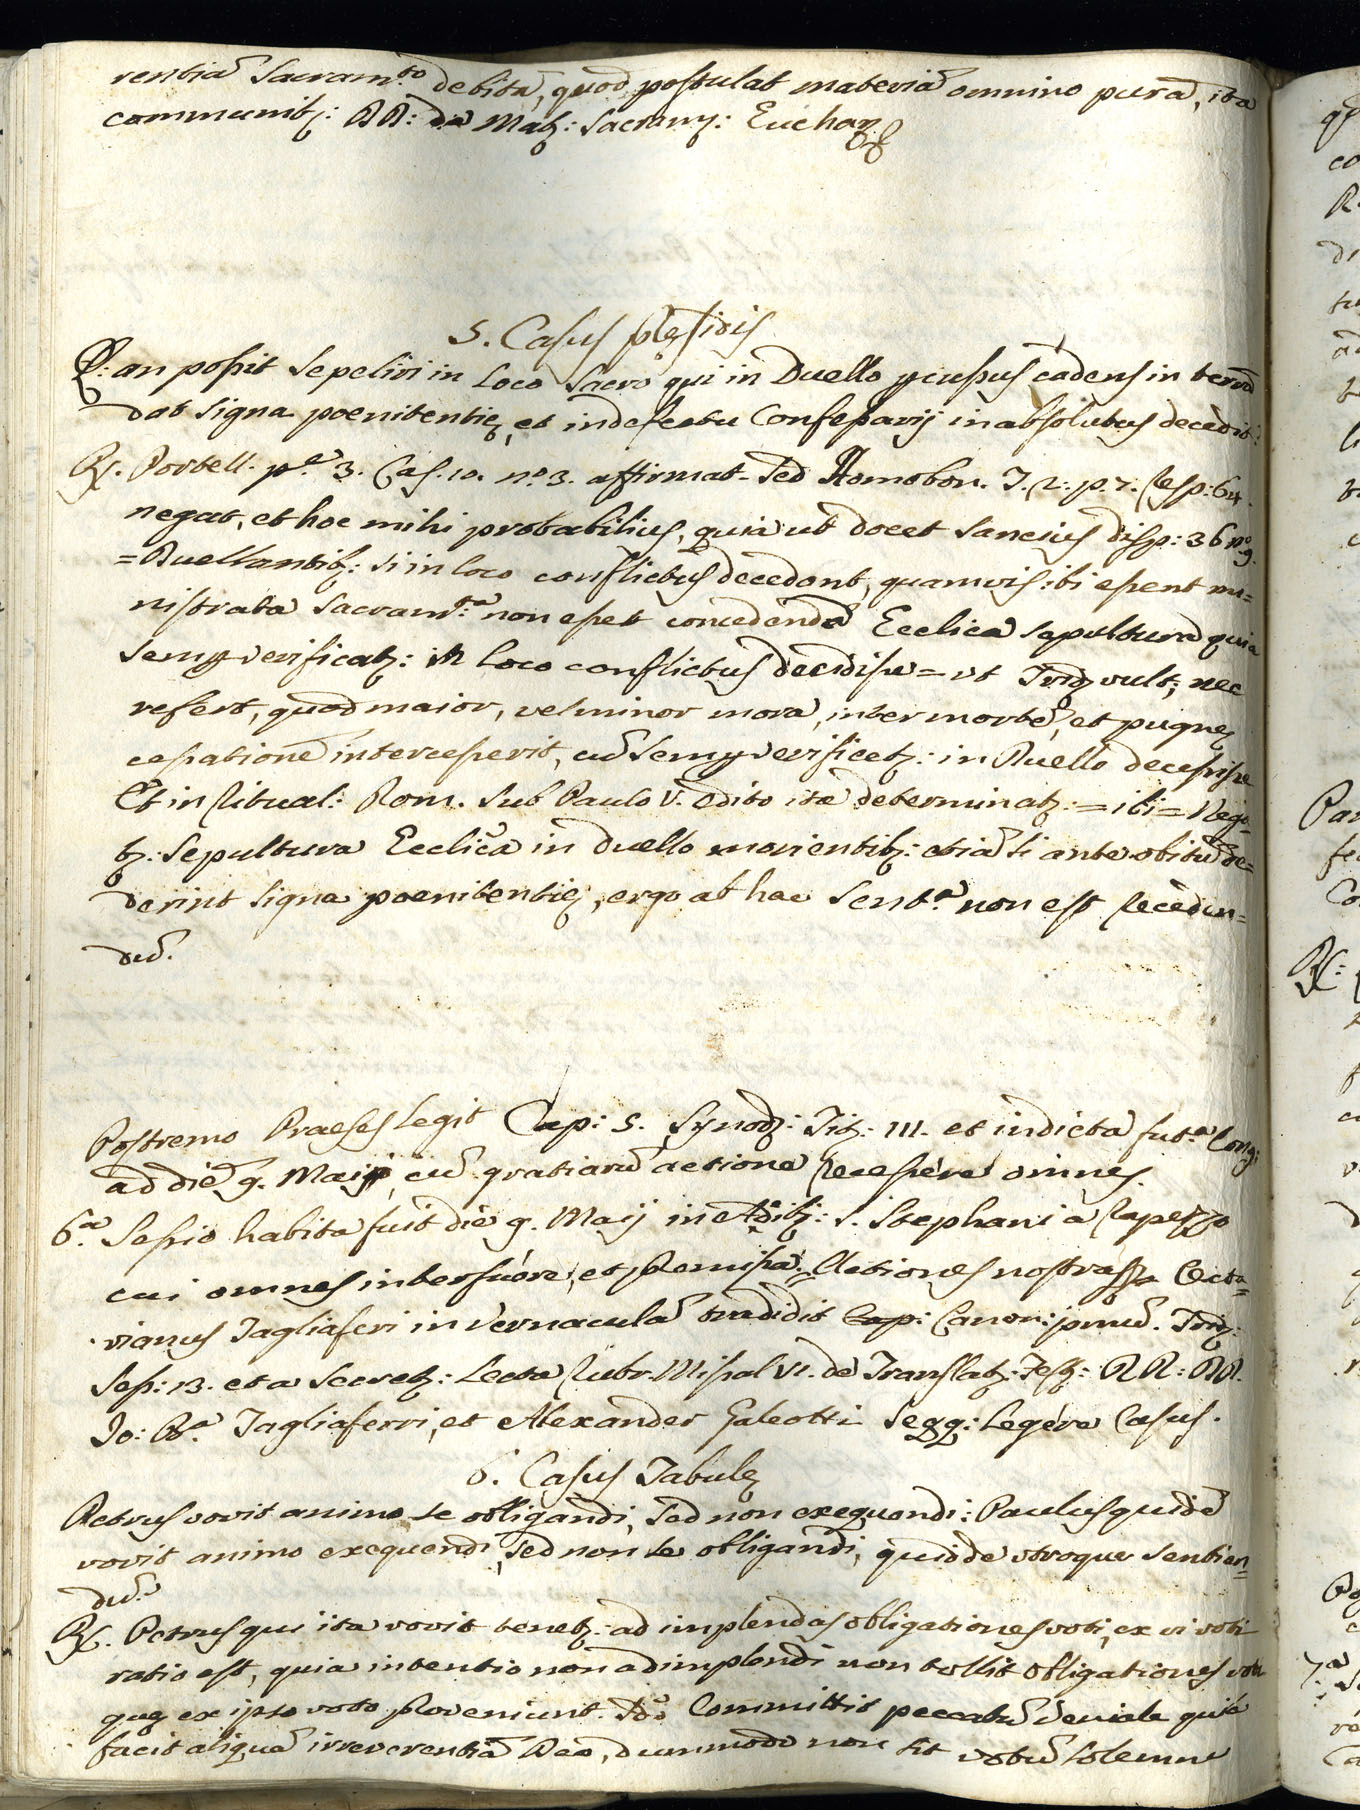 rentiã Sacram.to debitã, quod postulat materiã omnino purã, ita
communitʒ: DD: de Matʒ: Sacramʒ: Euchar.
5. Casus pṛesidis
Q: an possit sepeliri in loco sacro qui in Duello percussus cadens in terrã
dat signa poenitentię, et in defectu Confessarij inabsolutus decedit?
R. Portell. p.e 3. Cas. 10. n.o 3. affirmat. Sed Homobon. T. 2. p. 7. resp: 64.
negat, et hoc mihi probabilius, quia ut docet Sancius disp: 36 n.o 9.
=Duellantibʒ: si in loco conflictus decedant, quamvis ibi essent mi=
nistrata Sacram.ta non esset concedenda Ecclica sepultura quia
semper verificatʒ: in loco conflictus decidisse= ut Trid vult; nec
refert, quod maior, vel minor mora, inter mortẽ, et pugnę
cessationẽ intercesserit, cũ semper verificetʒ: in Duello decessisse
Et in Ritual: Rom. sub Paulo V. edito ita determinatʒ: =ibi= Nega=
tʒ: sepultura Ecclica in duello morientibʒ: etiã si ante obitũ de=
derint signa poenitentię, ergo ab hac sent.a non est receden=
dũ.
Postremo Praeses legit Cap: 5. Synodʒ: Titʒ: III. et indicta fut.a Congʒ:
ad diẽ 9. Maij, cũ gratiarũ actione recessere omnes.
6.a Sessio habita fuit die 9. Maij in Ædibʒ: S. Stephani à Rapezzo
cui omnes interfuere, et premissa. Actiones nostras Octa=
vianus Tagliaferi in vernaculã tradidit Cap: Canon: primũ. Trid:
Sess: 13. et a Secretʒ: lecta Rubr. Missal VI. de Translatʒ: Festʒ: RR: DD.
Jo: B.a Tagliaferri, et Alexander Galeotti seqq: legere Casus.
6. Casus Tabulę
Petrus vovit animo se obligandi, sed non exequendi: Paulus quidẽ
vovit animo exequendi, sed non se obligandi, quid de utroque sentien=
dũ?
R. Petrus qui ita vovit tenetʒ: ad implendas obligationes voti, ex vi voti
ratio est, quia intentio non adimplendi non tollit obligationes voti
quę ex ipso voto proveniunt. Committit peccatũ veniale quià
facit aliquã irreverentiã Deo, dummodo non sit votũ solemne